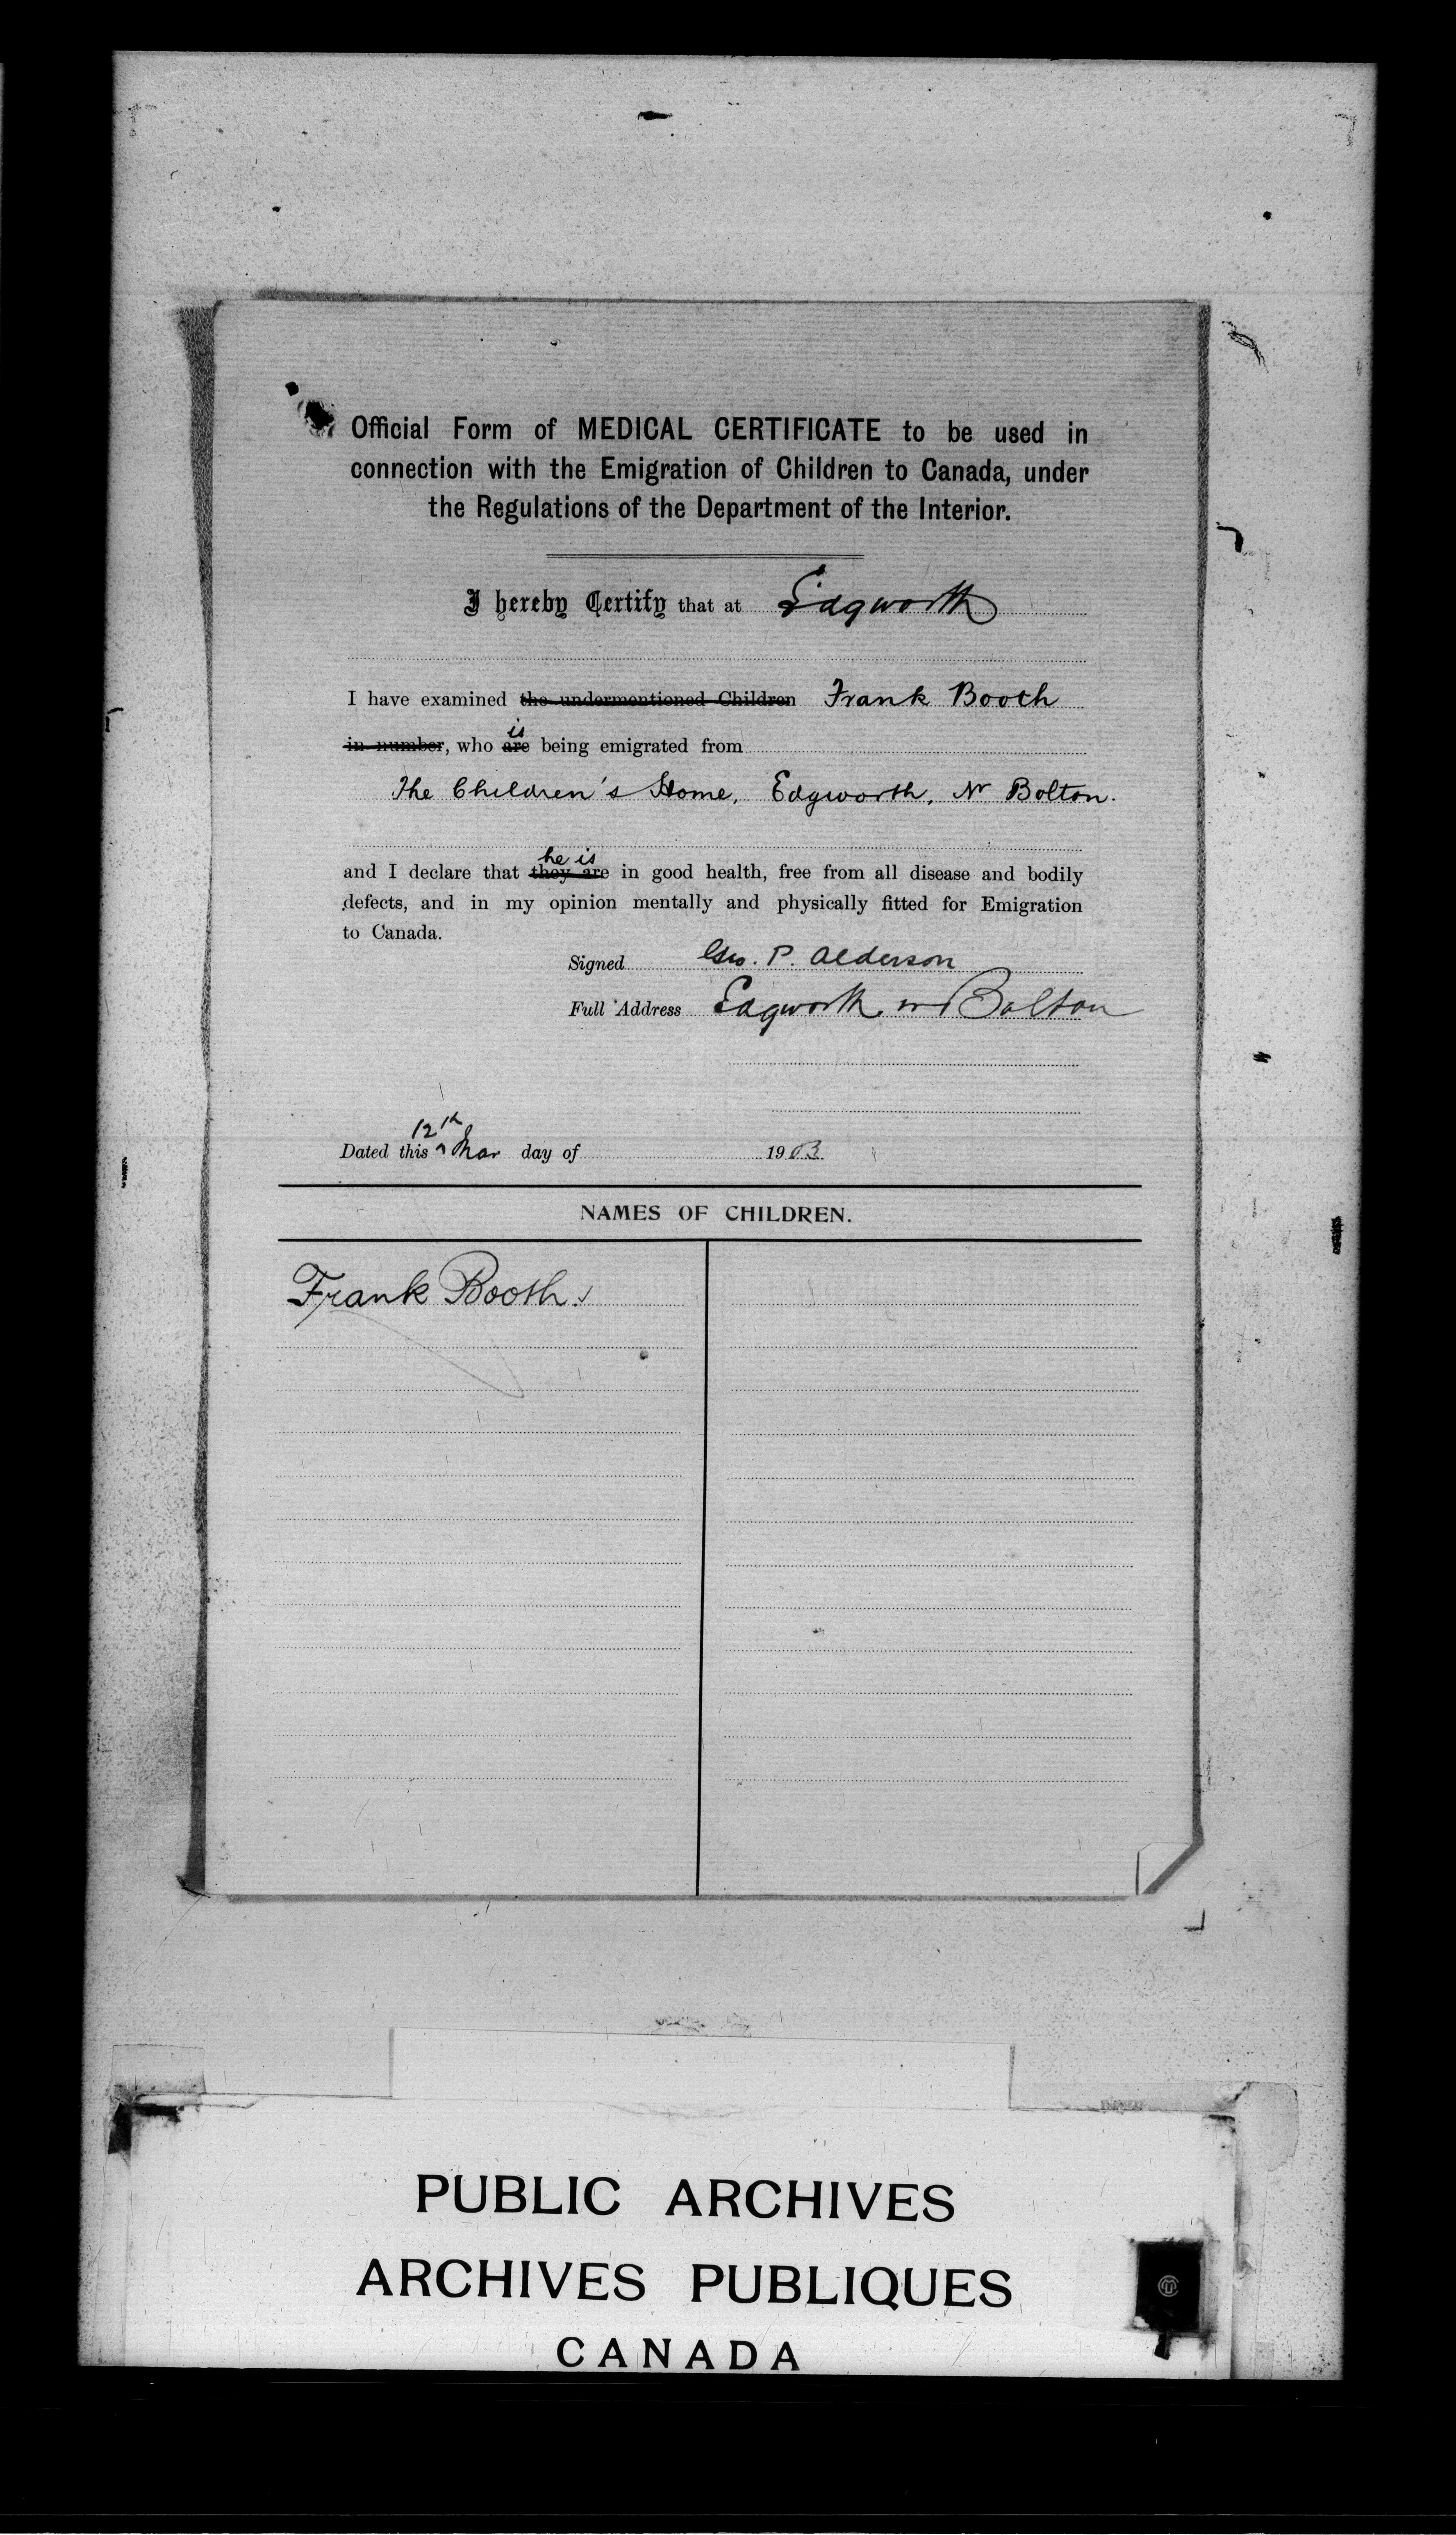 Official Form of MEDICAL CERTIFICATE to be used in
connection with the Emigration of Children to Canada, under
the Regulations of the Department of the Interior.
I hereby Certify that at Edgworth
I have examined the undermentioned Children Frank Booth
is
in number, who are being emigrated from
The Children's Home, Edgworth, Nr Bolton.
he is
and I declare that they are in good health, free from all disease and bodily
defects, and in my opinion mentally and physically fitted for Emigration
to Canada.
Signed Geo. P. Alderson
Full Address Edgworth nr Bolton
12th
Dated this Mar day of 1903
NAMES OF CHILDREN.
Frank Booth.
PUBLIC ARCHIVES
ARCHIVES PUBLIQUES
CANADA